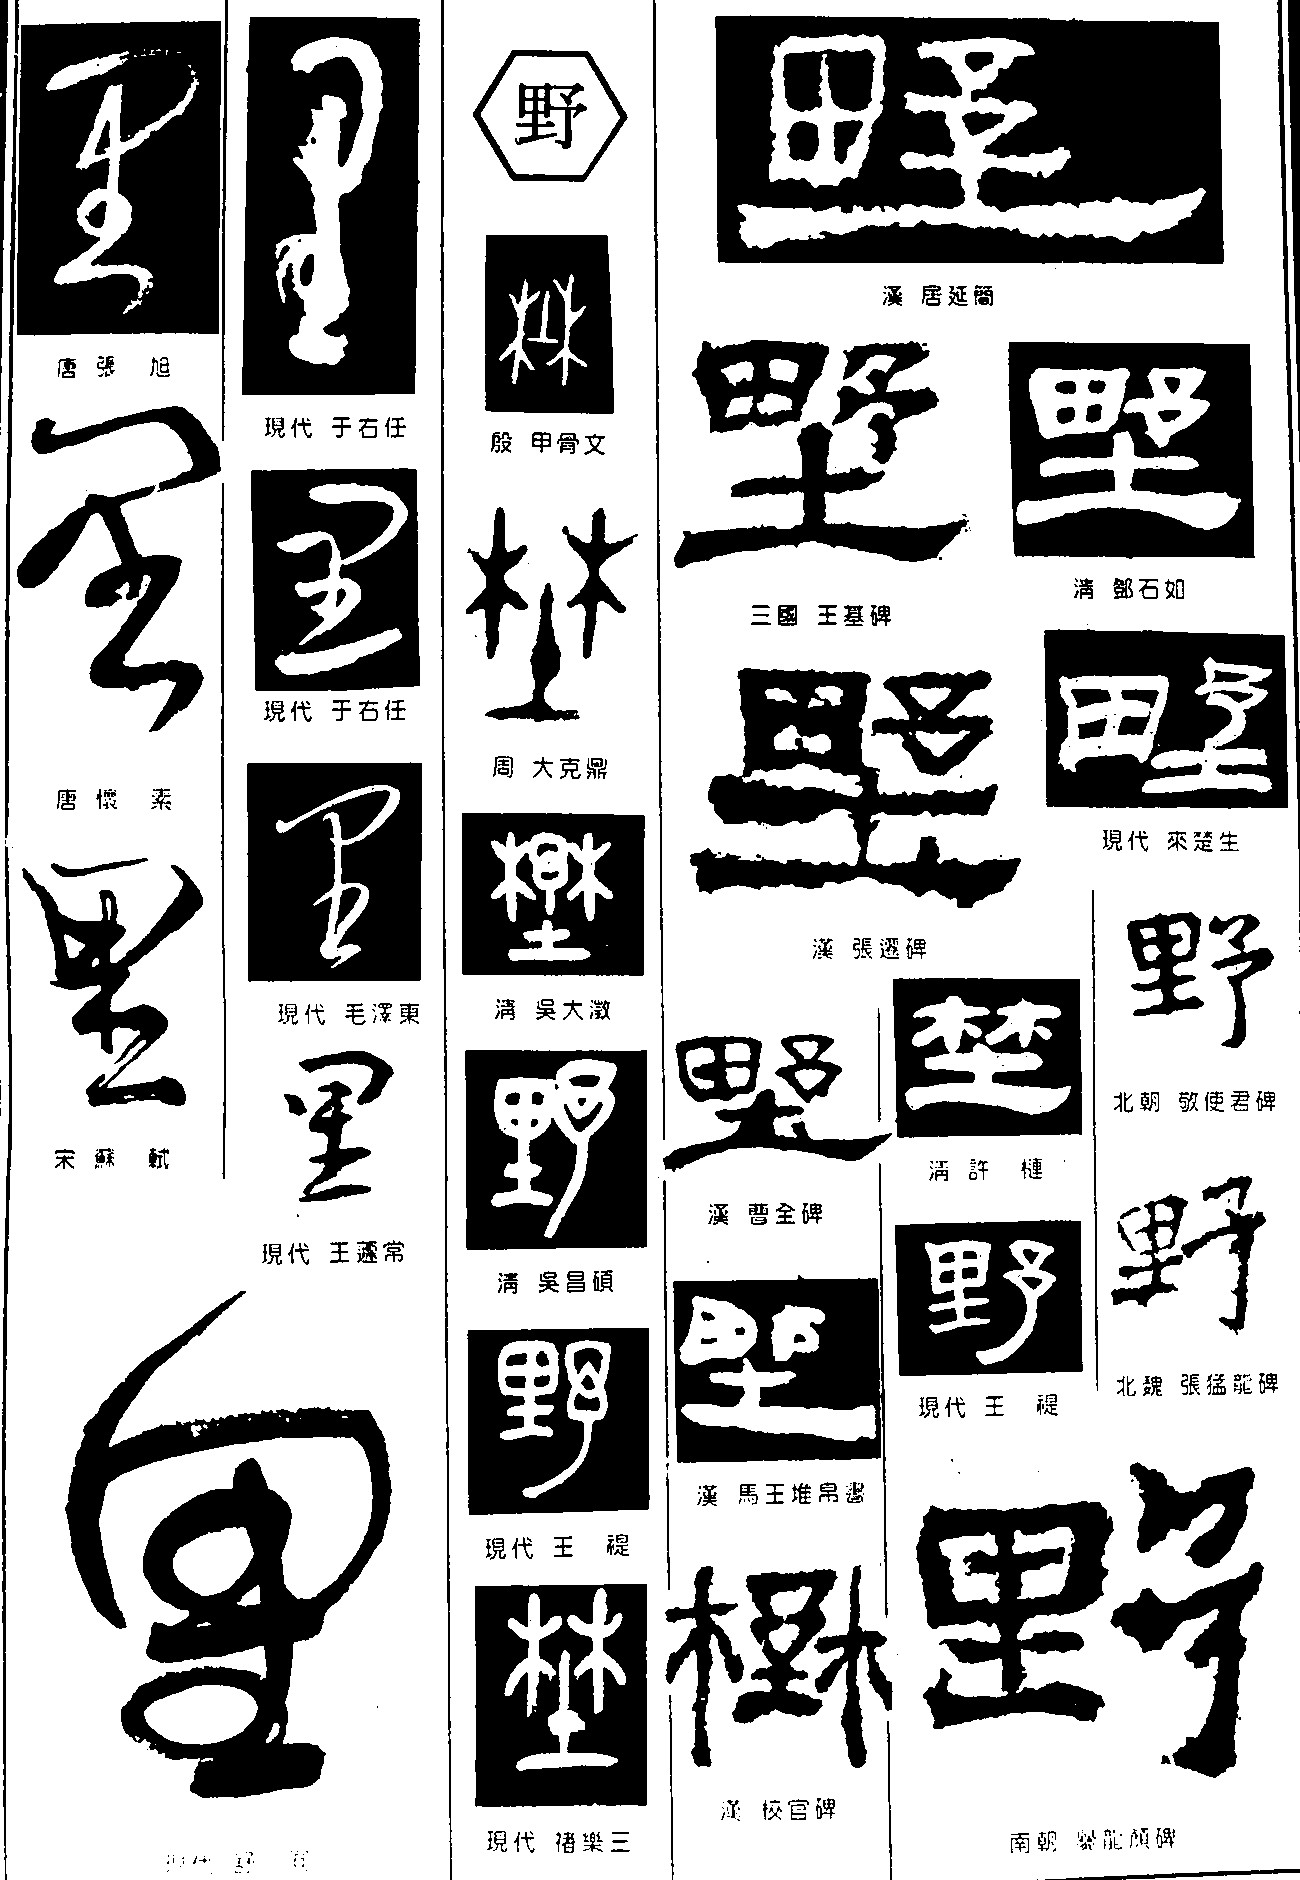 里
唐 張 旭
里
唐 懷 素
里
宋 蘇 軾
里
現代 于右任
里
現代 于右任
里
現代 毛澤東
里
現代 王蘧常
里
野
埜
殷 甲骨文
埜
周 大克鼎
清 吳大澂
野
清 吳昌碩
野
現代 王 禔
埜
現代 褚樂三
野
漢 居延簡
野
三國 王基碑
野
清 鄧石如
野
漢 張遷碑
野
現代 來楚生
野
漢 曹全碑
埜
清 許 槤
野
北朝 敬使君碑
野
漢 馬王堆帛書
野
現代 王 禔
野
北魏 張猛龍碑
漢 校官碑
野
南朝 爨龍顏碑